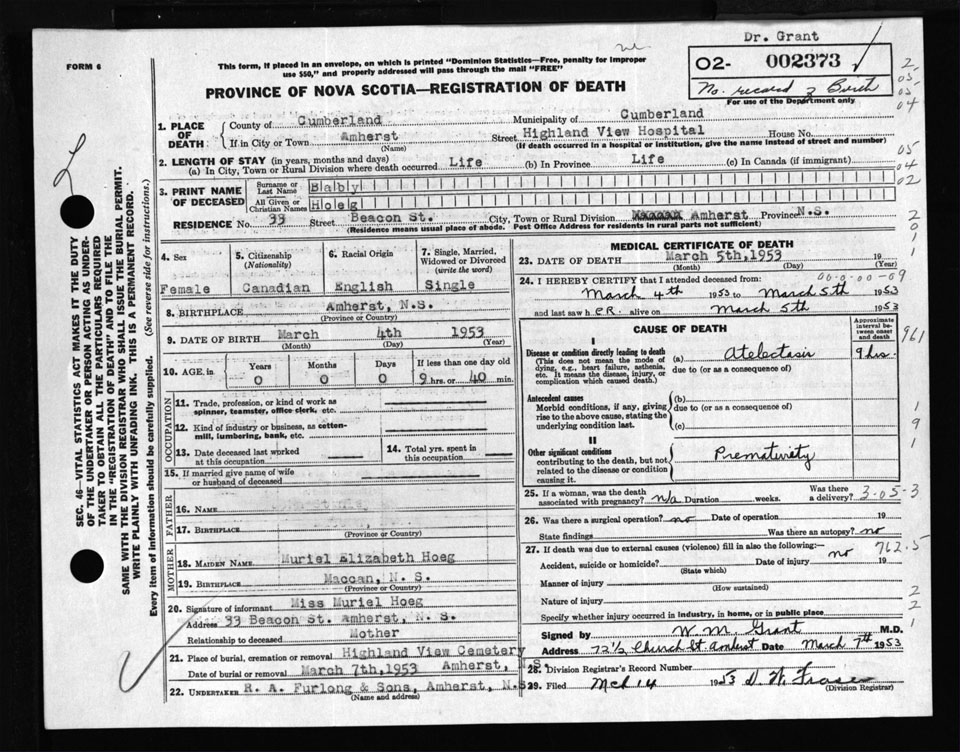 Dr. Grant
FORM 6
This form, if placed in an envelope, on which is printed "Dominion Statistics—Free, penalty for improper
use $50," and properly addressed will pass through the mail "FREE"
O2- 002373
No. record of Birth
For use of the Department only
PROVINCE OF NOVA SCOTIA—REGISTRATION OF DEATH
1. PLACE OF DEATH:
County of Cumberland Municipality of Cumberland
If in City or Town Amherst Street Highland View Hospital House No.
(Name) (If death occurred in a hospital or institution, give the name instead of street and number)
2. LENGTH OF STAY (in years, months and days)
(a) In City, Town or Rural Division where death occurred Life (b) In Province Life (c) In Canada (if immigrant)
3. PRINT NAME OF DECEASED
Surname or Last Name Baby
All Given or Christian Names Hoeg
RESIDENCE No. 33 Street Beacon St. City, Town or Rural Division Amherst Province N.S.
(Residence means usual place of abode. Post Office Address for residents in rural parts not sufficient)
4. Sex
Female
5. Citizenship
(Nationality)
Canadian
6. Racial Origin
English
7. Single, Married,
Widowed or Divorced
(write the word)
Single
8. BIRTHPLACE Amherst, N.S.
(Province or Country)
9. DATE OF BIRTH March 4th 1953
(Month) (Day) (Year)
10. AGE in
Years Months Days If less than one day old
0 0 0 9 hrs. or 40 min.
OCCUPATION
11. Trade, profession, or kind of work as
spinner, teamster, office clerk, etc.
12. Kind of industry or business, as cotton-
mill, lumbering, bank, etc.
13. Date deceased last worked
at this occupation
14. Total yrs. spent in
this occupation
15. If married give name of wife
or husband of deceased
FATHER
16. NAME
17. BIRTHPLACE
(Province or Country)
MOTHER
18. MAIDEN NAME Muriel Elizabeth Hoeg
19. BIRTHPLACE Maccan, N. S.
(Province or Country)
20. Signature of informant Miss Muriel Hoeg
Address 33 Beacon St. Amherst, N. S.
Relationship to deceased Mother
21. Place of burial, cremation or removal Highland View Cemetery
Date of burial or removal March 7th, 1953 Amherst, N.S.
22. UNDERTAKER R. A. Furlong & Sons, Amherst, N.S.
(Name and address)
MEDICAL CERTIFICATE OF DEATH
23. DATE OF DEATH March 5th, 1953 19
(Month) (Day) (Year)
24. I HEREBY CERTIFY that I attended deceased from:
March 4th 1953 to March 5th 1953
and last saw her alive on March 5th 1953
CAUSE OF DEATH
Approximate
interval be-
tween onset
and death
I
Disease or condition directly leading to death
(This does not mean the mode of
dying, e.g., heart failure, asthenia,
etc. It means the disease, injury, or
complication which caused death.)
(a) Atelectasis 9 hrs.
due to (or as a consequence of)
Antecedent causes
Morbid conditions, if any, giving
rise to the above cause, stating the
underlying condition last.
(b)
due to (or as a consequence of)
(c)
II
Other significant conditions
contributing to the death, but not
related to the disease or condition
causing it.
Prematurity
25. If a woman, was the death
associated with pregnancy? n/a Duration weeks.
Was there
a delivery? 3-05-3
26. Was there a surgical operation? no Date of operation 19
State findings Was there an autopsy? no
27. If death was due to external causes (violence) fill in also the following:—
Accident, suicide or homicide? no Date of injury 19
(State which)
762.5
Manner of injury
(How sustained)
Nature of injury
Specify whether injury occurred in industry, in home, or in public place
Signed by W. M. Grant M.D.
Address 72½ Church St Amherst Date March 7th 1953
28. Division Registrar's Record Number
29. Filed Mch 14 1953 D. W. Fraser
(Division Registrar)
SEC. 46—VITAL STATISTICS ACT MAKES IT THE DUTY
OF THE UNDERTAKER OR PERSON ACTING AS UNDER-
TAKER TO OBTAIN ALL THE PARTICULARS REQUIRED
IN THE "REGISTRATION OF DEATH" AND TO FILE THE
SAME WITH THE DIVISION REGISTRAR WHO SHALL ISSUE THE BURIAL PERMIT.
WRITE PLAINLY WITH UNFADING INK. THIS IS A PERMANENT RECORD.
Every item of information should be carefully supplied. (See reverse side for instructions.)
2
05
05
04
05
04
02
2
0
1
1
961
1
9
1
2
2
1